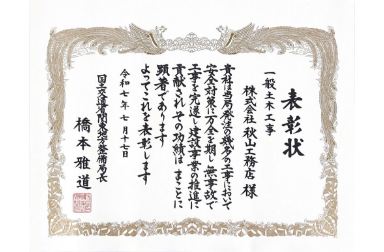 表彰状
一般土木工事
株式会社 秋山工務店 様
貴社は当局発注の幾多の工事において
安全対策に万全を期し無事故で
工事を完遂し建設事業の推進に
貢献されその功績はまことに
顕著であります
よってこれを表彰します
令和七年七月十七日
国土交通省関東地方整備局長
橋本雅道